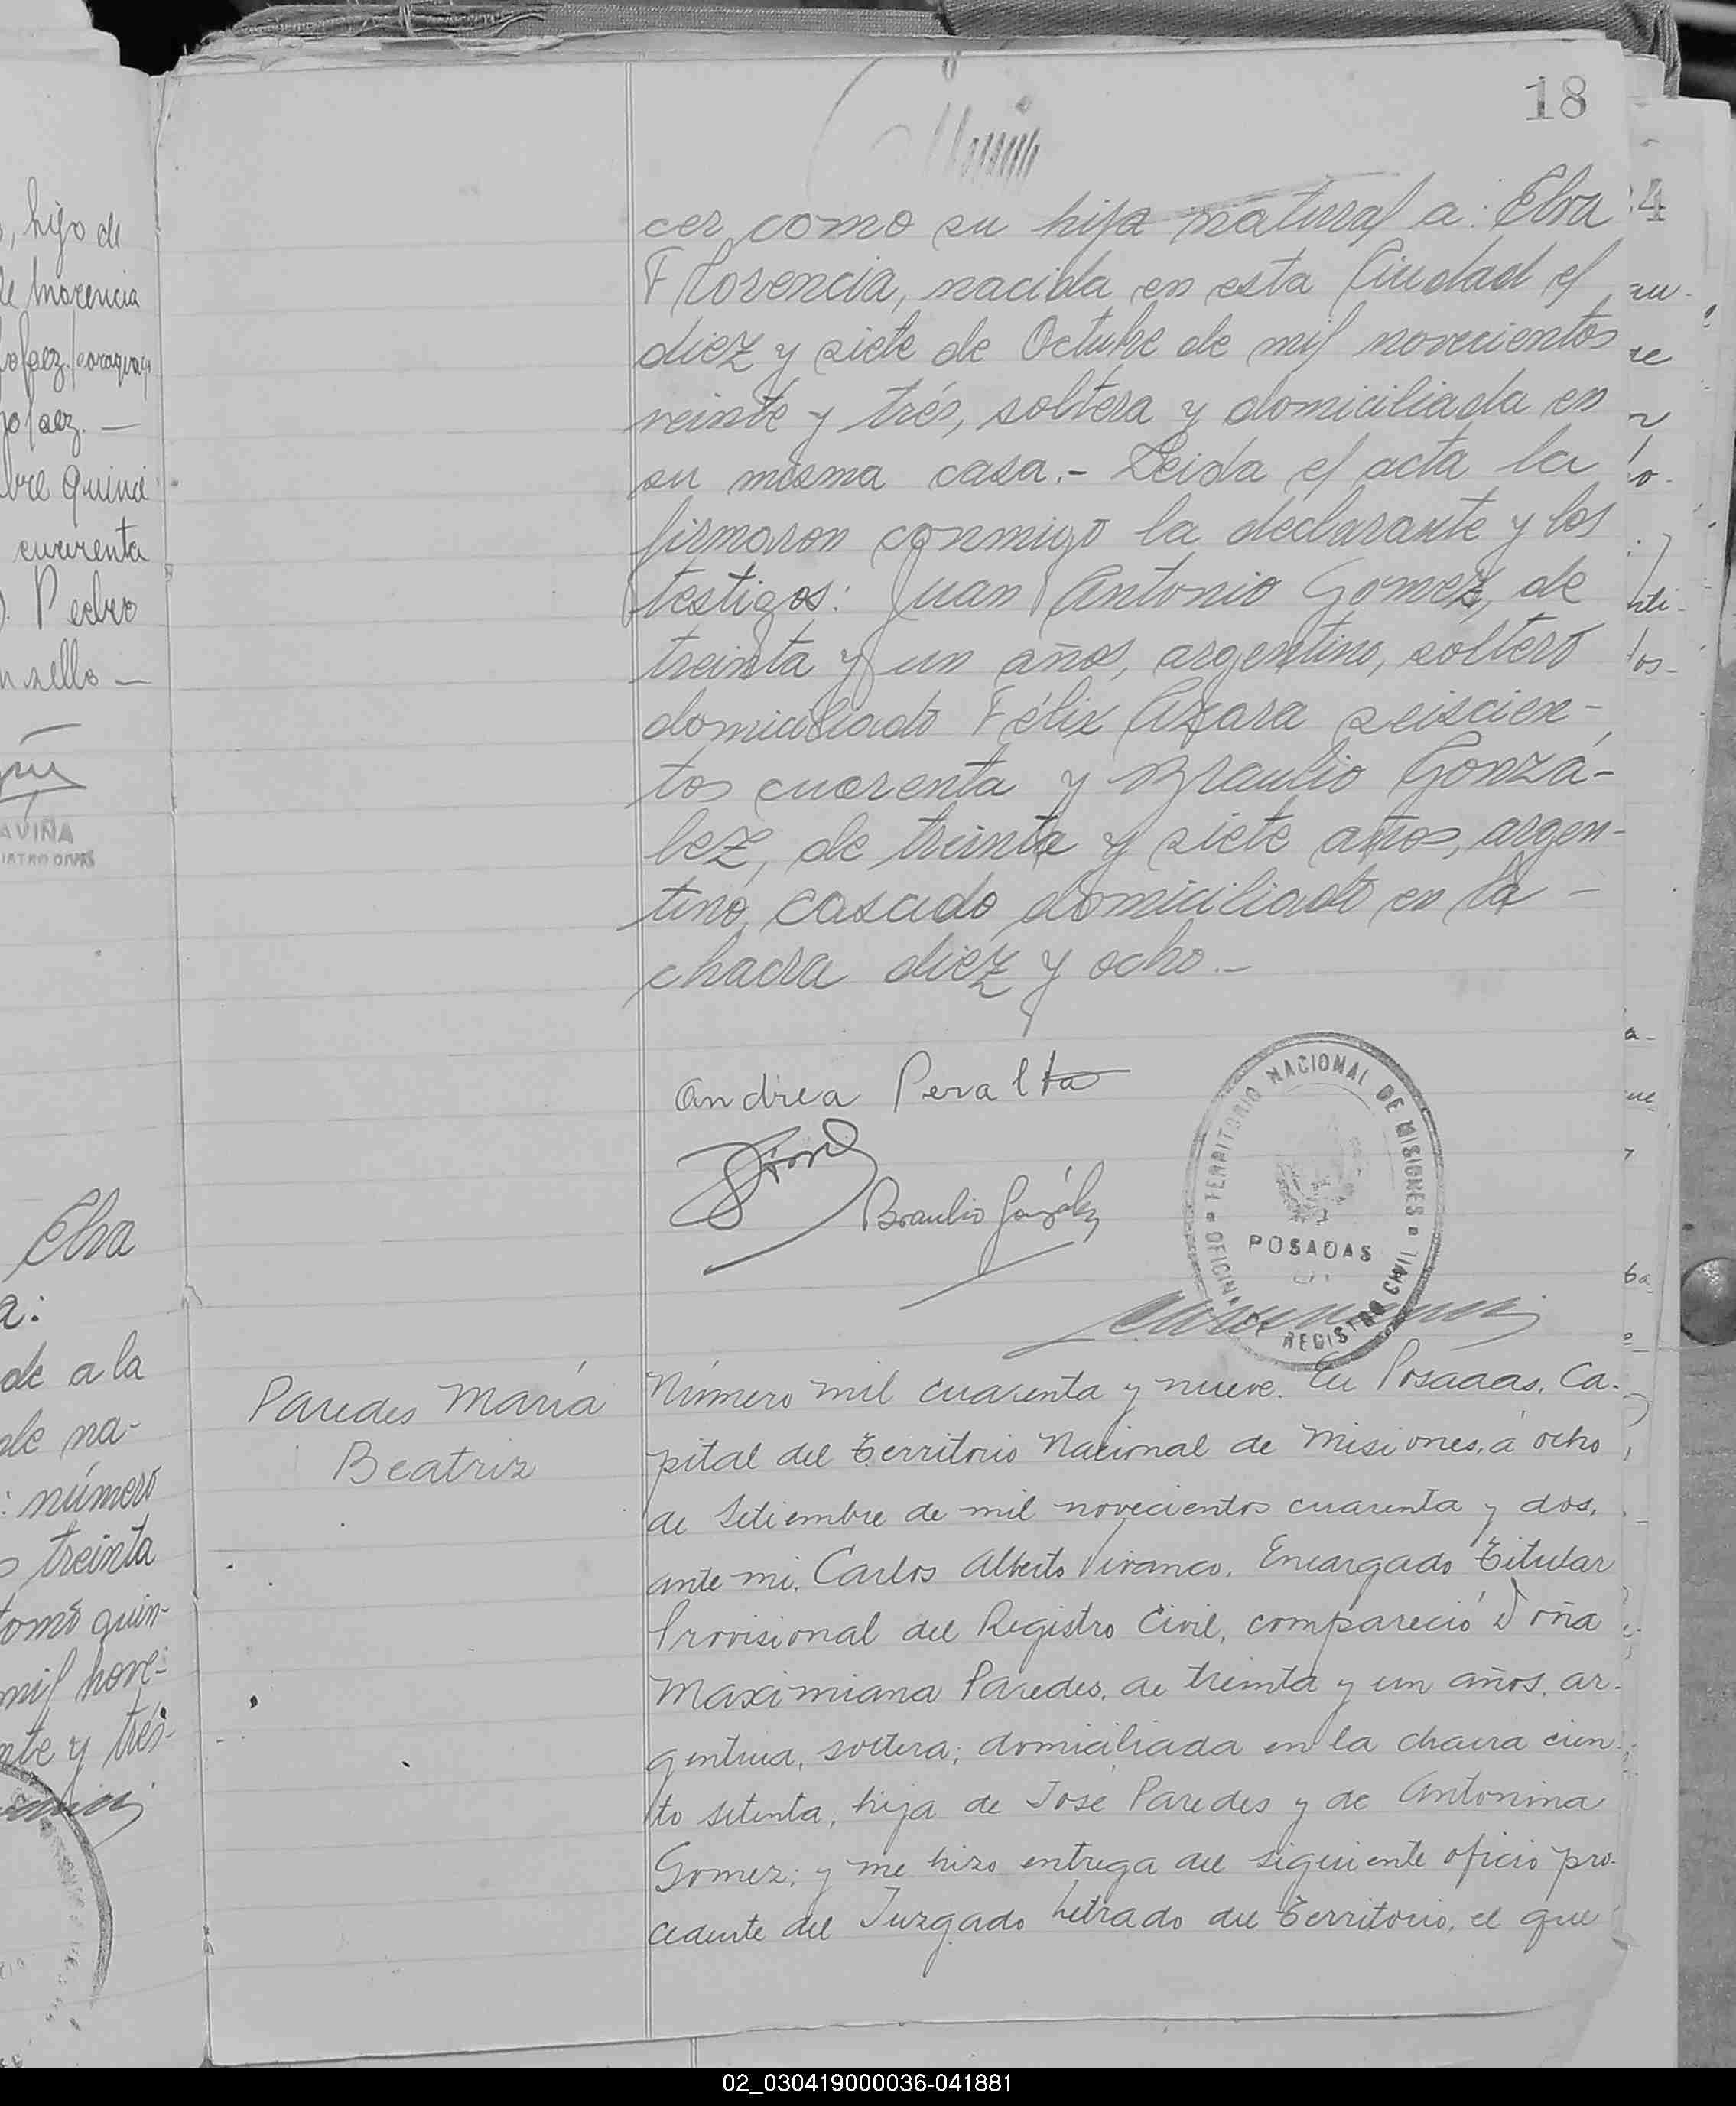 18
cer como su hija natural a: Elva
Florencia, nacida en esta Ciudad el
diez y siete de Octubre de mil novecientos
veinte y trés, soltera y domiciliada en
su misma casa.- Leida el acta la
firmaron conmigo la declarante y los
testigos: Juan Antonio Gomez, de
treinta y un años, argentino, soltero
domiciliado Félix Azara seiscien-
tos cuarenta y Braulio Gonzá-
lez, de treinta y siete años, argen-
tino, casado domiciliado en la -
chacra diez y ocho.-
Andrea Peralta
Braulio González
TERRITORIO NACIONAL DE MISIONES
POSADAS
OFICINA REGISTRO CIVIL
Paredes María
Beatriz
Número mil cuarenta y nueve. En Posadas, Ca-
pital del Territorio Nacional de Misiones, á ocho
de Setiembre de mil novecientos cuarenta y dos,
ante mi, Carlos Alberto Vivanco, Encargado Titular
Provisional del Registro Civil, compareció Doña
Maximiana Paredes, de treinta y un años, ar-
gentina, soltera, domiciliada en la chacra cien-
to setenta, hija de José Paredes y de Antonina
Gomez; y me hizo entrega del siguiente oficio pro-
cedente del Juzgado Letrado del Territorio, el que
hijo de
cuarenta
Pedro
sello -
Elva
a:
de a la
de na-
: número
treinta
tomo quin-
mil nove-
y trés-
02_030419000036-041881